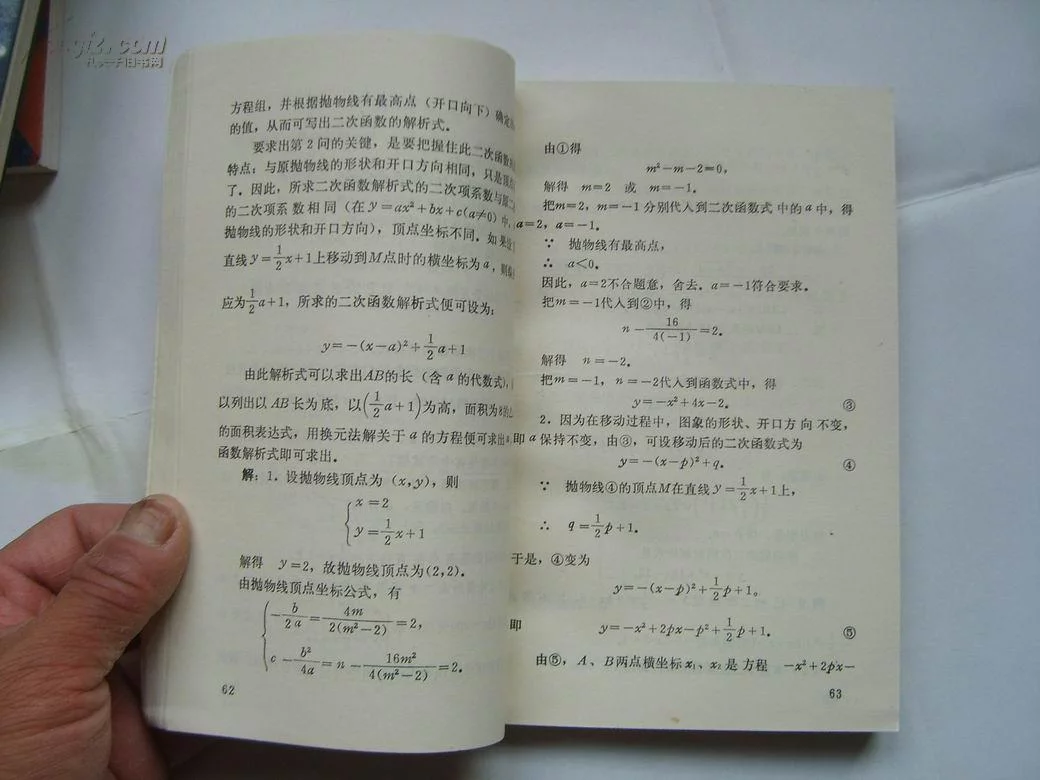 方程组，并根据抛物线有最高点（开口向下）确定
的值，从而可写出二次函数的解析式．
要求出第2问的关键，是要把握住此二次函数
特点：与原抛物线的形状和开口方向相同，只是顶点
了．因此，所求二次函数解析式的二次项系数与原二
的二次项系数相同（在y=ax²+bx+c(a≠0)中，
抛物线的形状和开口方向），顶点坐标不同．如果设
直线y=1/2x+1上移动到M点时的横坐标为a，则
应为1/2a+1，所求的二次函数解析式便可设为：
y=-(x-a)²+1/2a+1
由此解析式可以求出AB的长（含a的代数式），
以列出以AB长为底，以(1/2a+1)为高，面积为
的面积表达式，用换元法解关于a的方程便可求出
函数解析式即可求出．
解：1．设抛物线顶点为(x,y)，则
{x=2
y=1/2x+1
解得 y=2，故抛物线顶点为(2,2)．
由抛物线顶点坐标公式，有
{-b/2a=4m/2(m²-2)=2，
c-b²/4a=n-16m²/4(m²-2)=2．
62
由①得
m²-m-2=0，
解得 m=2 或 m=-1．
把m=2，m=-1分别代入到二次函数式中的a中，得
a=2，a=-1．
∵ 抛物线有最高点，
∴ a<0．
因此，a=2不合题意，舍去．a=-1符合要求．
把m=-1代入到②中，得
n-16/4(-1)=2．
解得 n=-2．
把m=-1，n=-2代入到函数式中，得
y=-x²+4x-2． ③
2．因为在移动过程中，图象的形状、开口方向不变，
即a保持不变，由③，可设移动后的二次函数式为
y=-(x-p)²+q． ④
∵ 抛物线④的顶点M在直线y=1/2x+1上，
∴ q=1/2p+1．
于是，④变为
y=-(x-p)²+1/2p+1。
即 y=-x²+2px-p²+1/2p+1． ⑤
由⑤，A、B两点横坐标x₁、x₂是方程 -x²+2px-
63